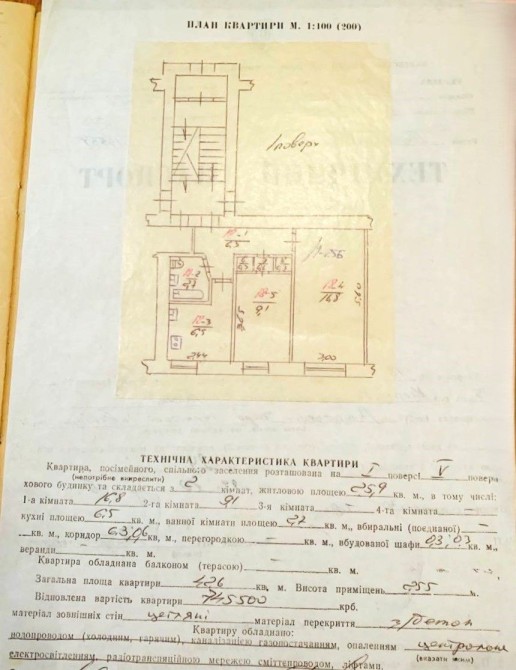 ПЛАН КВАРТИРИ М. 1:100 (200)
I поверх
h-2,55
12-1
6,5
12-2
12-4
16,8
5,60
12-5
9,1
12-3
6,5
2,44
3,00
ТЕХНІЧНА ХАРАКТЕРИСТИКА КВАРТИРИ
Квартира, посімейного, спільного заселення розташована на I поверсі V поверхового будинку та складається з 2 кімнат, житловою площею 25,9 кв. м, в тому числі:
(непотрібне викреслити)
1-а кімната 16,8 2-га кімната 9,1 3-я кімната — 4-та кімната —
кухні площею 6,5 кв. м., ванної кімнати площею 2,7 кв. м., вбиральні (поєднаної) —
кв. м., коридор кв. м., перегородкою — кв. м., вбудованої шафи 0,3; 0,3 кв. м.,
веранди кв. м.
Квартира обладнана балконом (терасою) — кв. м.
Загальна площа квартири 42,6 кв. м. Висота приміщень 2,55 м.
Відновлена вартість квартири 745500 крб.
матеріал зовнішніх стін цегляні матеріал перекриття з/бетон
Квартиру обладнано:
водопроводом (холодним, гарячим), каналізацією газопостачанням, опаленням
(вказати яким)
електроосвітленням, радіотрансляційною мережею сміттєпроводом, ліфтами.